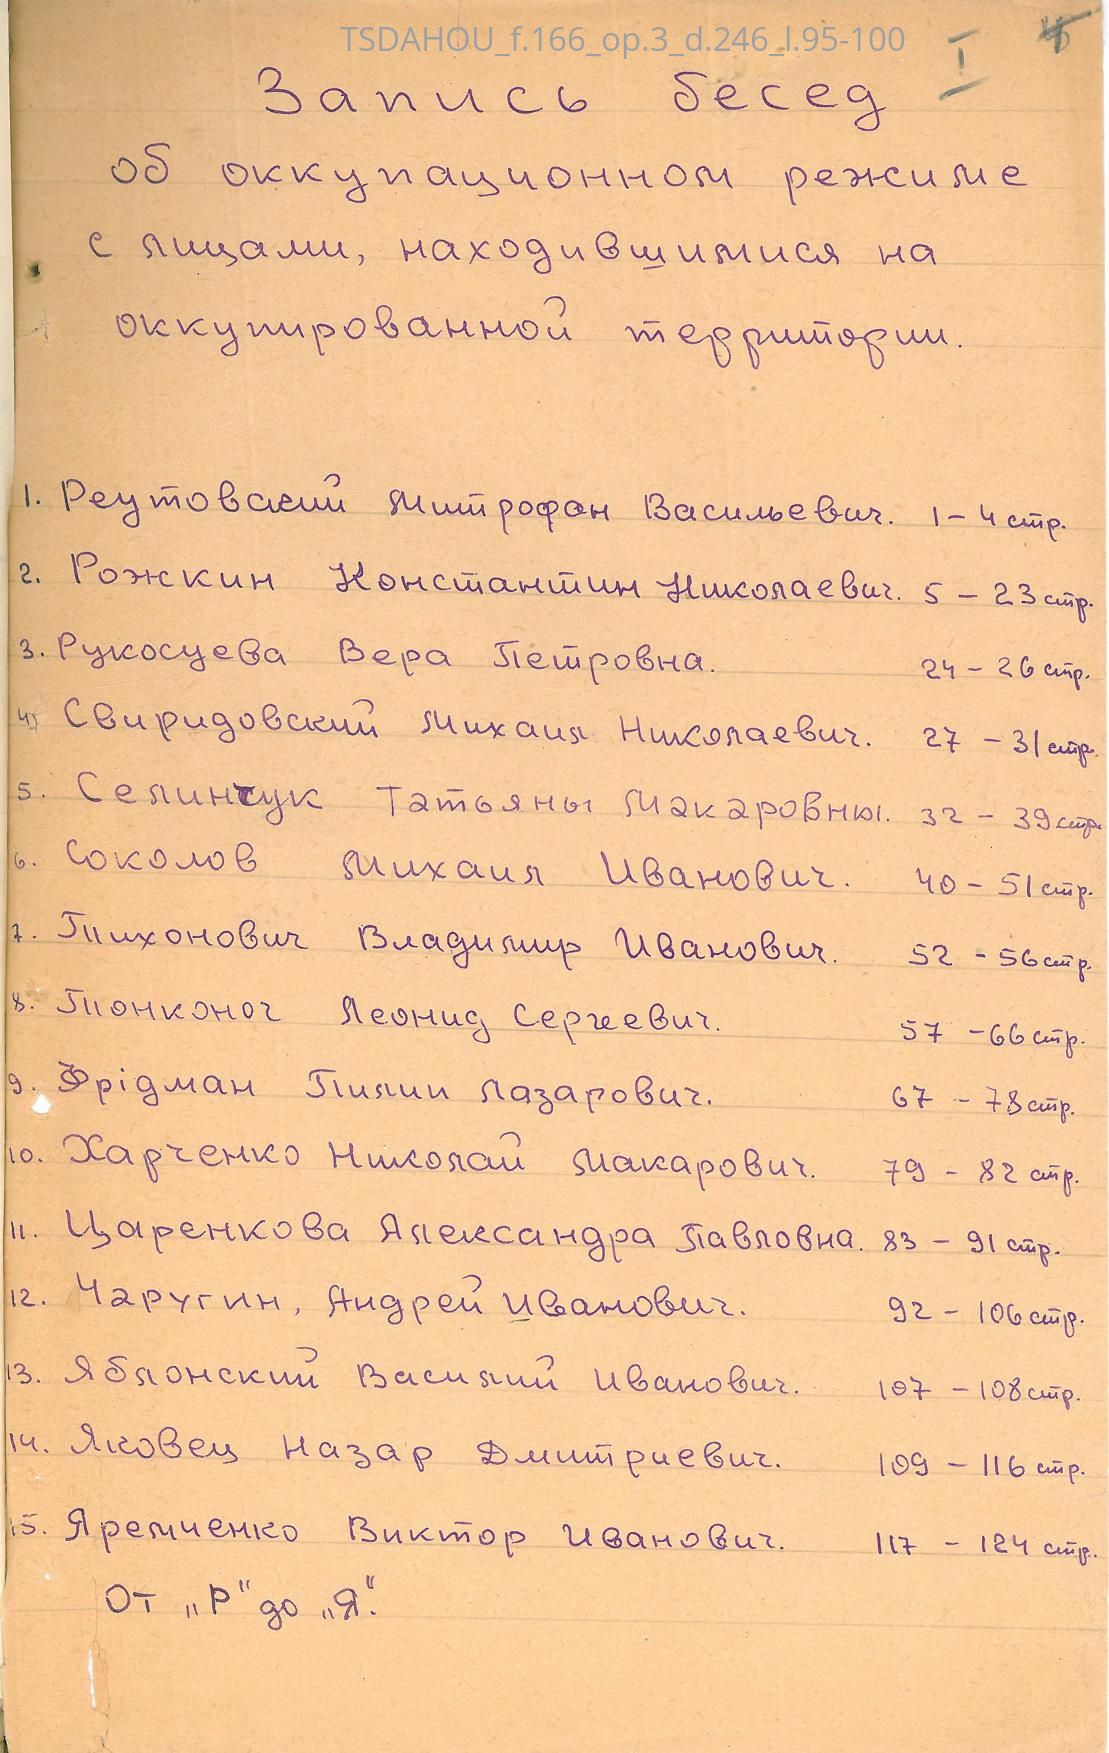 TSDAHOU_f.166_op.3_d.246_l.95-100
I
Запись бесед
об оккупационном режиме
с лицами, находившимися на
оккупированной территории.
1. Реутовский Митрофан Васильевич. 1 – 4 стр.
2. Рожкин Константин Николаевич. 5 – 23 стр.
3. Рукосуева Вера Петровна. 24 – 26 стр.
4. Свиридовский Михаил Николаевич. 27 – 31 стр.
5. Селинчук Татьяны Макаровны. 32 – 39 стр.
6. Соколов Михаил Иванович. 40 – 51 стр.
7. Тихонович Владимир Иванович. 52 – 56 стр.
8. Тонконог Леонид Сергеевич. 57 – 66 стр.
9. Фрідман Пилип Лазарович. 67 – 78 стр.
10. Харченко Николай Макарович. 79 – 82 стр.
11. Царенкова Александра Павловна. 83 – 91 стр.
12. Чаругин, Андрей Иванович. 92 – 106 стр.
13. Яблонский Василий Иванович. 107 – 108 стр.
14. Яковец Назар Дмитриевич. 109 – 116 стр.
15. Яремченко Виктор Иванович. 117 – 124 стр.
От „Р" до „Я".